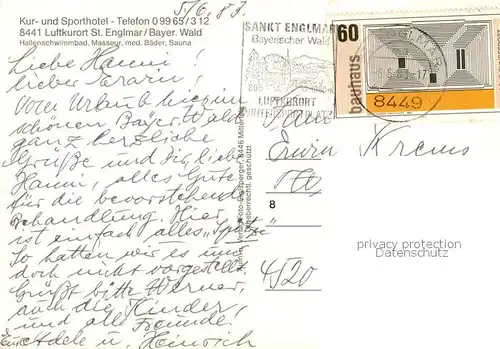 Kur- und Sporthotel - Telefon 0 99 65/3 12
8441 Luftkurort St. Englmar/Bayer. Wald
Hallenschwimmbad, Masseur, med. Bäder, Sauna
5/6. 83.
Liebe Hanni!
lieber Erwin!
Vom Urlaub hier im
schönen Bayer. Wald
ganz herzliche
Grüße und Dir, liebe
Hanni, alles Gute
für die bevorstehende
Behandlung. Hier
ist einfach alles "Spitze"
So hatten wir es uns
doch nicht vorgestellt
Grüßt bitte Werner,
auch die Kinder,
und alle Freunde!
Adele u. Heinrich
SANKT ENGLMAR
Bayerischer Wald
LUFTKURORT
WINTERSPORTPLATZ
60
bauhaus
ENGLMAR
8449
Erwin Krems
8
4520
privacy protection
Datenschutz